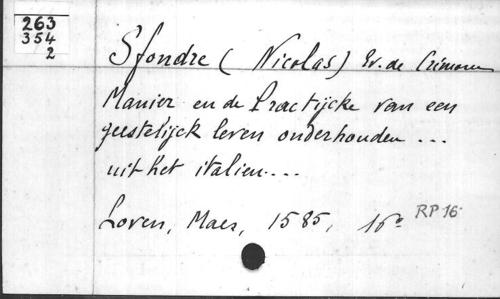 263
354
2
Sfondre (Nicolas) Ev. de Crémone
Manier en de Practijcke van een
geestelijck leven onderhouden ...
uit het italien....
Loven, Maes, 1585, 16°
RP 16.